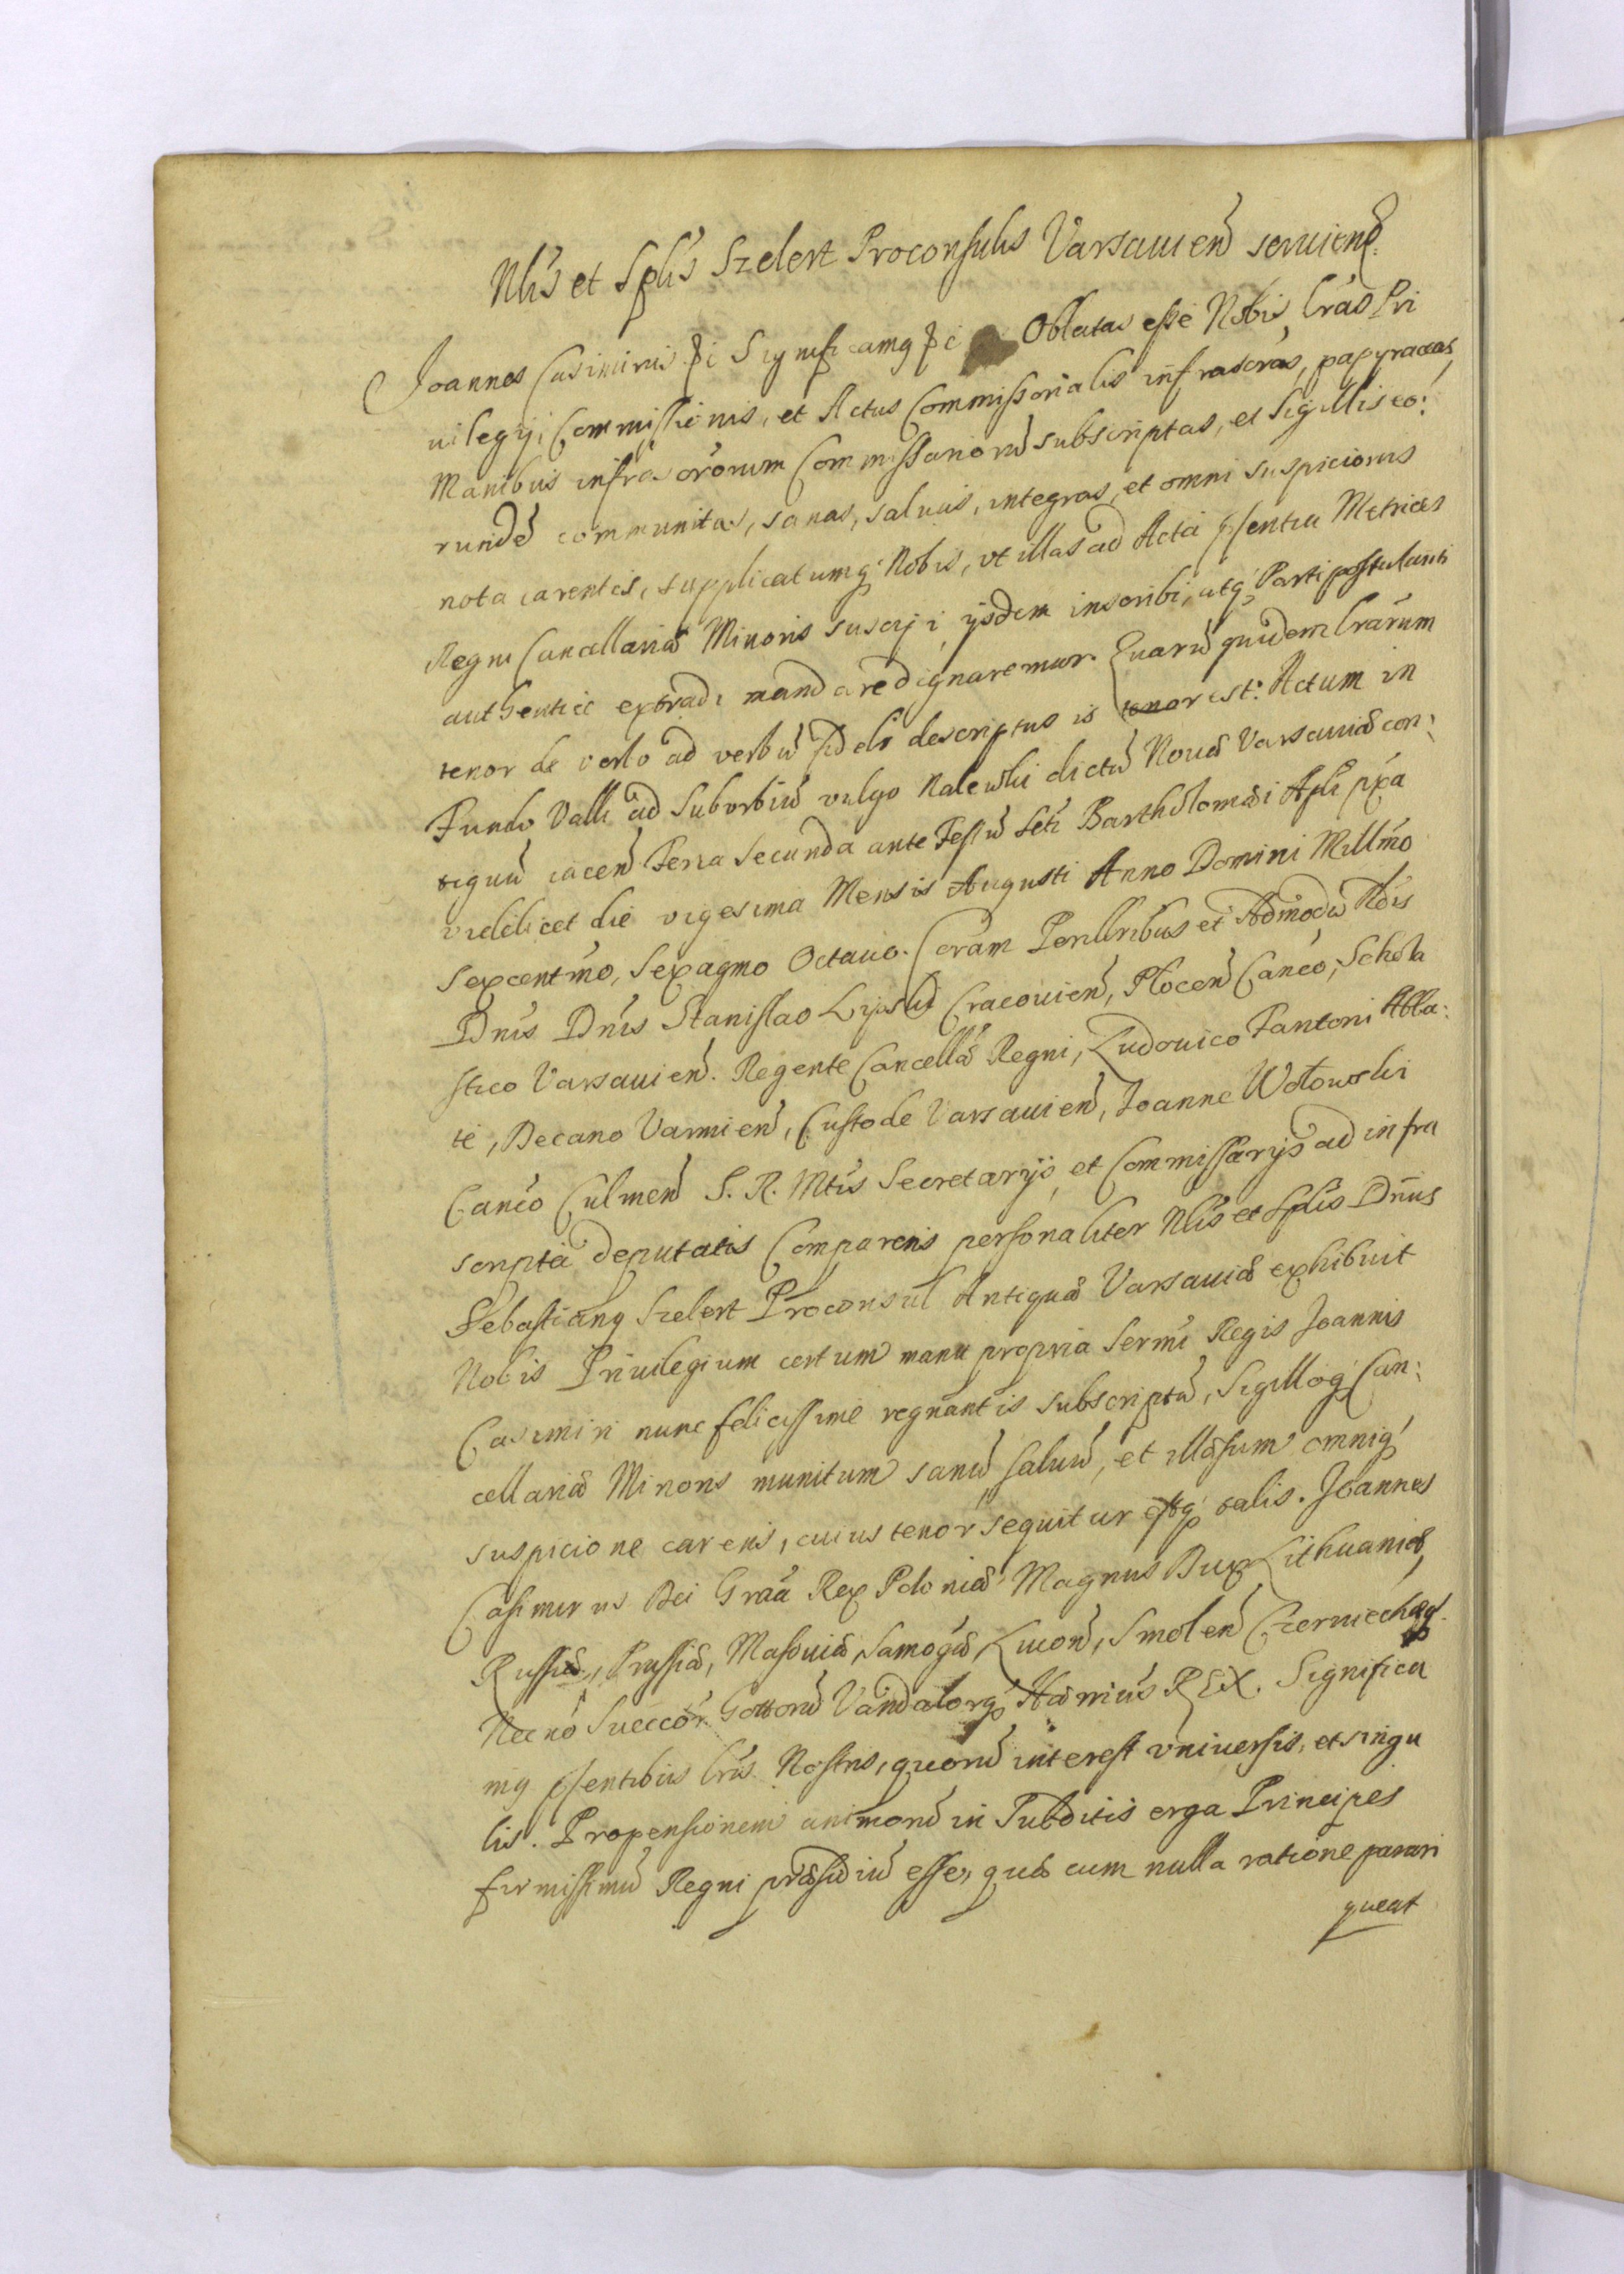 Nlis et Splis Szelert Proconsulis Varsauien seruieñ.
Joannes Casimirus &c Significamq &c Oblatas esse Nobis lras Pri
uilegij, Commissionis, et Actus Commissorialis infrascras, papyraceas,
Manibus infrascrorum Commissariorū subscriptas, et Sigillis eo:
rundē communitas, sanas, saluas, integras, et omni suspicionis
nota carentes, supplicatumq Nobis, vt illas ad Acta pſentia Metrices
Regni Cancellariæ Minoris suscipi, ijsdem inscribi, atq Parti postulanti
authentice extradi mandare dignaremur. Quarū quidem lrarum
tenor de verbo ad verbū fideli descriptus is tenor est: Actum in
Fundo Valli ad Suburbiū vulgo Nalewki dictū Nouæ Varsauiæ con:
tiguū iaceñ Feria Secunda ante Festū Scti Bartholomæi Apli pxa
videlicet die vigesima Mensis Augusti Anno Domini Millmo
Sexcentmo, Sexagmo Octauo. Coram Perillribus et Admodū Rdis
Dnis Dnis Stanislao Lipski Cracouień, Plocen Canco, Schola
stico Varsauień. Regente Cancellæ Regni, Ludouico Fantoni Abba:
te, Decano Varmień, Custode Varsauień, Joanne Wołowski
Canco Culmeń S. R. Mtis Secretarijs, et Commissarijs ad infra
scripta deputatis Comparens personaliter Nlis et Splis Dnus
Sebastianq Szelert Proconsul Antiquæ Varsauiæ exhibuit
Nobis Priuilegium certum manu propria Sermi Regis Joannis
Casimiri nunc felicissime regnantis subscriptū, Sigilloq Can:
cellariæ Minoris munitum sanū saluū, et illæsum omniq
suspicione carens, cuius tenor sequitur estq talis. Joannes
Casimirus Dei Graa Rex Poloniæ Magnus Dux Lithuaniæ,
Russiæ, Prussiæ, Masouiæ, Samogæ, Liuoń, Smoleń Czerniechæq
Necnō Suecor Gottorū Vandalorq Hærius REX. Significa
mq pſentibus lris Nostris, quorū interest vniuersis, et singu
lis. Propensionem animorū in Subditis erga Principes
firmissimū Regni præsidiū esse, quæ cum nulla ratione parari
queat